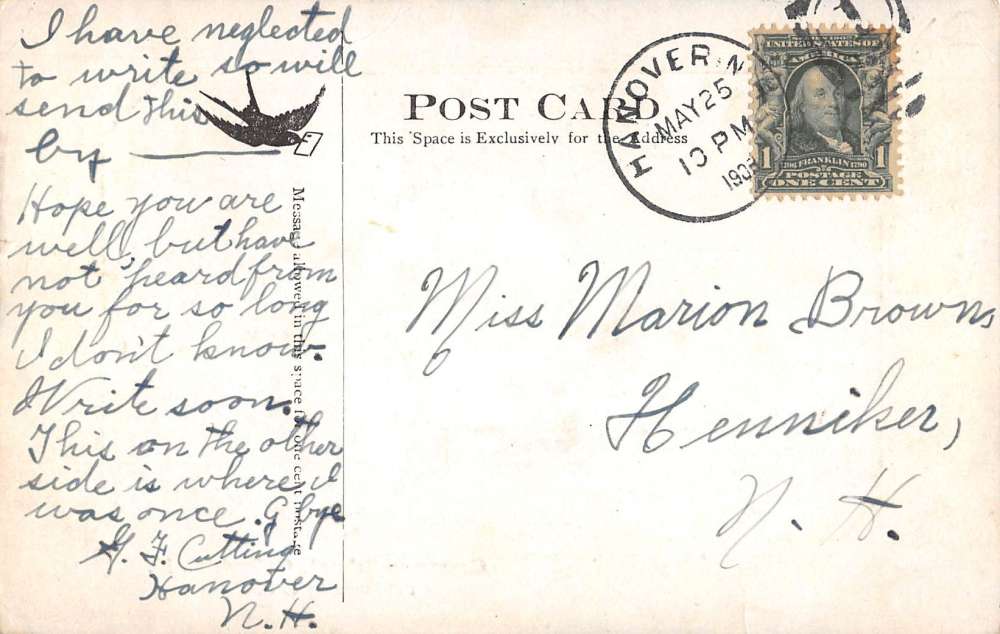 I have neglected
to write so will
send this
by
Hope you are
well, but have
not heard from
you for so long
I don't know.
Write soon.
This on the other
side is where I
was once. G bye
F. Cutting
Hanover
N.H.
Message allowed in this space for one cent postage
POST CARD
This Space is Exclusively for the Address
HANOVER N
MAY 25
10 PM
190
SERIES 1902
UNITED STATES OF
AMERICA
1 1706 FRANKLIN 1790 1
POSTAGE
ONE CENT
Miss Marion Brown,
Henniker,
N. H.